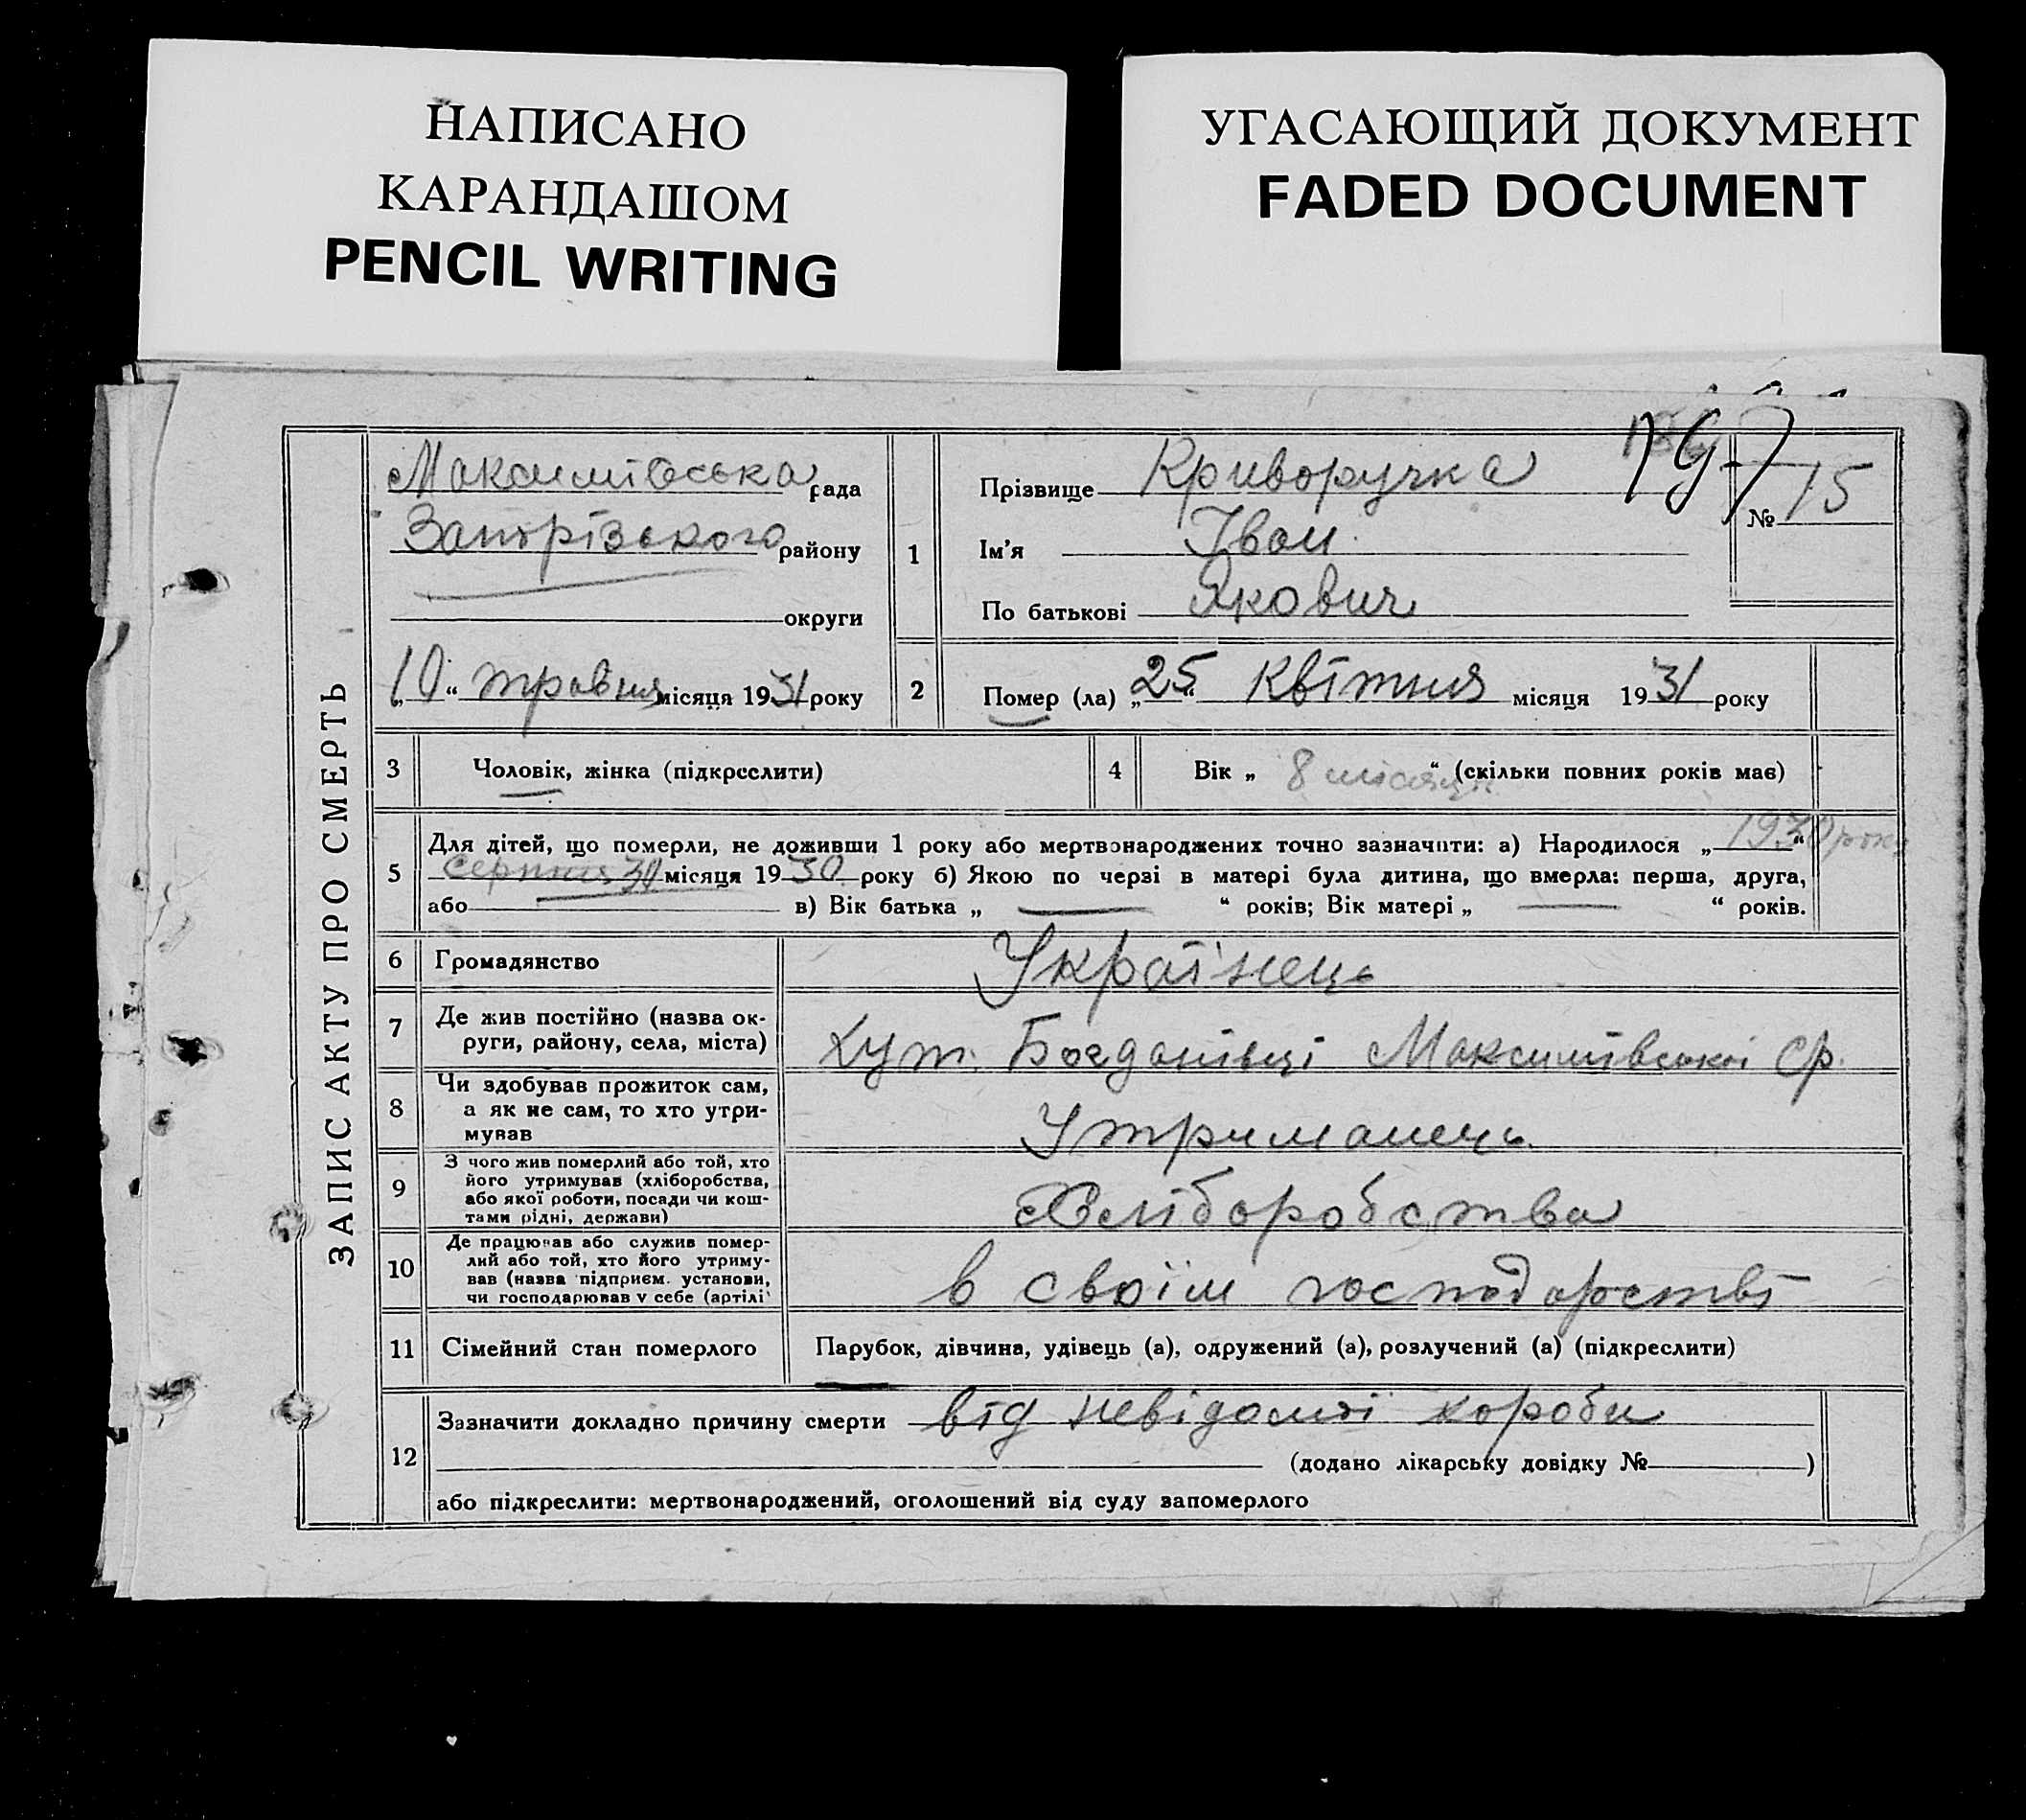 НАПИСАНО
КАРАНДАШОМ
PENCIL WRITING
УГАСАЮЩИЙ ДОКУМЕНТ
FADED DOCUMENT
ЗАПИС АКТУ ПРО СМЕРТЬ
Максимівська рада
Запорізького району
округи
„10“ травня місяця 1931 року
1
Прізвище Криворучка
Ім'я Іван
По батькові Якович
197
№ 15
2
Помер (ла) „25“ квітня місяця 1931 року
3 Чоловік, жінка (підкреслити)
4 Вік „8 місяців“ (скільки повних років має)
5 Для дітей, що померли, не доживши 1 року або мертвонароджених точно зазначити: а) Народилося „1930 року“
серпня 30 місяця 1930 року б) Якою по черзі в матері була дитина, що вмерла: перша, друга,
або в) Вік батька „ — “ років; Вік матері „ — “ років.
6 Громадянство Українець
7 Де жив постійно (назва ок-
руги, району, села, міста) Хут. Богданівці Максимівської ср.
8 Чи здобував прожиток сам,
а як не сам, то хто утри-
мував Утриманець
9 З чого жив померлий або той, хто
його утримував (хліборобства,
або якої роботи, посади чи кош-
тами рідні, держави) Хліборобства
10 Де працював або служив помер-
лий або той, хто його утриму-
вав (назва підприєм. установи,
чи господарював у себе (артілі) в своїм господарстві
11 Сімейний стан померлого Парубок, дівчина, удівець (а), одружений (а), розлучений (а) (підкреслити)
12 Зазначити докладно причину смерти від невідомої хороби
(додано лікарську довідку № )
або підкреслити: мертвонароджений, оголошений від суду запомерлого